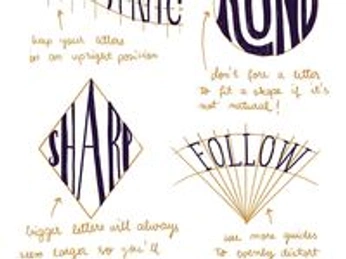 ROUND
keep your letters
on an upright position
don't force a letter
to fit a shape if it's
not natural!
SHARP
FOLLOW
bigger letters will always
seem larger so you'll
use more guides
to evenly distort